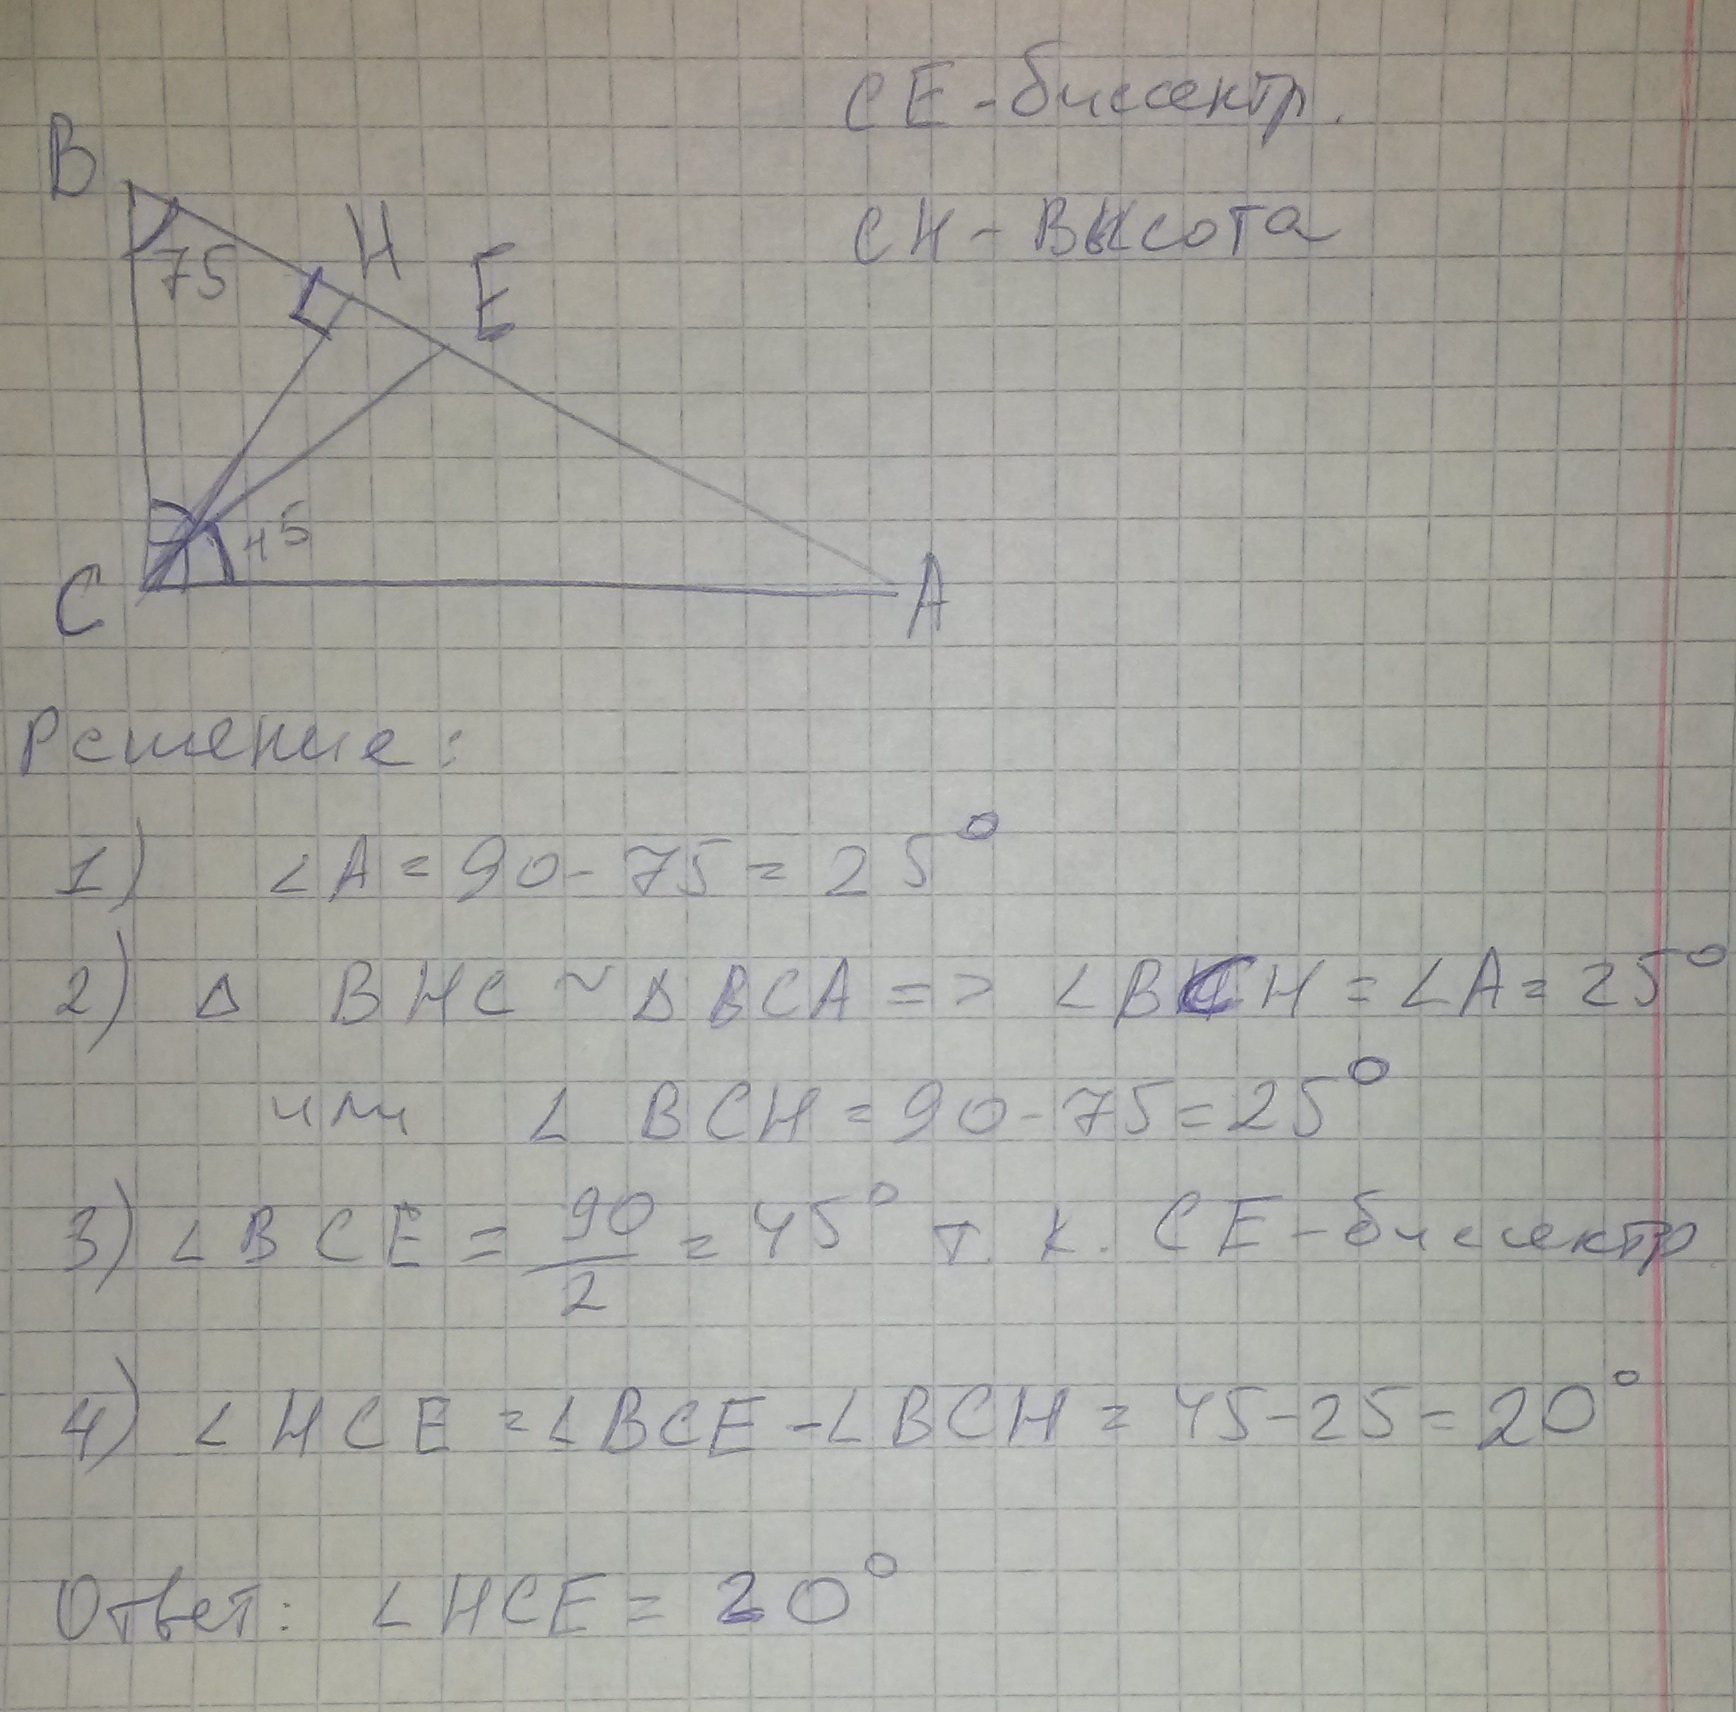 CE - биссектр.
CH - Высота
B
H
75
E
45
C
A
Решение:
1) ∠A = 90 - 75 = 25°
2) Δ BHC ~ Δ BCA => ∠BCH = ∠A = 25°
или ∠ BCH = 90 - 75 = 25°
3) ∠BCE = 90/2 = 45° т. к. CE - биссектр
4) ∠HCE = ∠BCE - ∠BCH = 45 - 25 = 20°
Ответ: ∠HCE = 20°